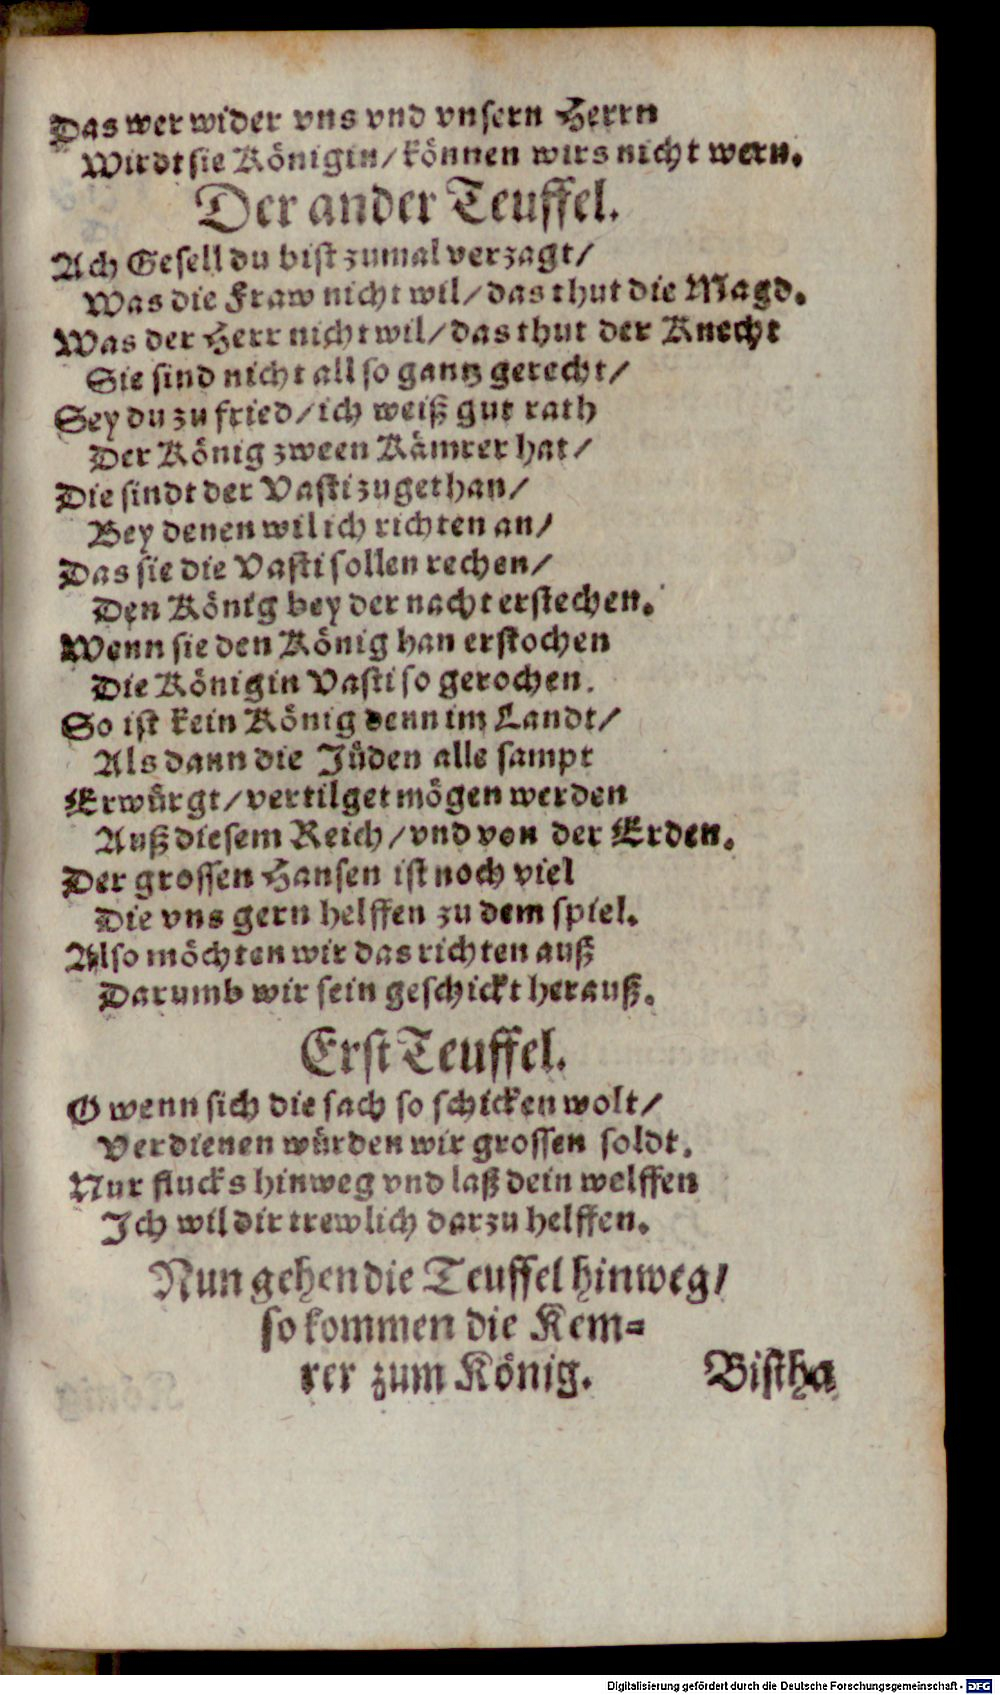 Das wer wider vns vnd vnsern Herrn
Wirdt sie Königin/ können wirs nicht wern.
Der ander Teuffel.
Ach Gesell du bist zumal verzagt/
Was die Fraw nicht wil/ das thut die Magd.
Was der Herr nicht wil/ das thut der Knecht
Sie sind nicht all so gantz gerecht/
Sey du zu fried/ ich weiß gut rath
Der König zween Kämrer hat/
Die sindt der Vasti zugethan/
Bey denen wil ich richten an/
Das sie die Vasti sollen rechen/
Den König bey der nacht erstechen.
Wenn sie den König han erstochen
Die Königin Vasti so gerochen.
So ist kein König denn im Landt/
Als dann die Jüden alle sampt
Erwürgt/ vertilget mögen werden
Auß diesem Reich/ vnd von der Erden.
Der grossen Hansen ist noch viel
Die vns gern helffen zu dem spiel.
Also möchten wir das richten auß
Darumb wir sein geschickt herauß.
Erst Teuffel.
O wenn sich die sach so schicken wolt/
Verdienen würden wir grossen soldt.
Nur flucks hinweg vnd laß dein welffen
Ich wil dir trewlich darzu helffen.
Nun gehen die Teuffel hinweg/
so kommen die Kem-
rer zum König. Bistha
Digitalisierung gefördert durch die Deutsche Forschungsgemeinschaft - DFG